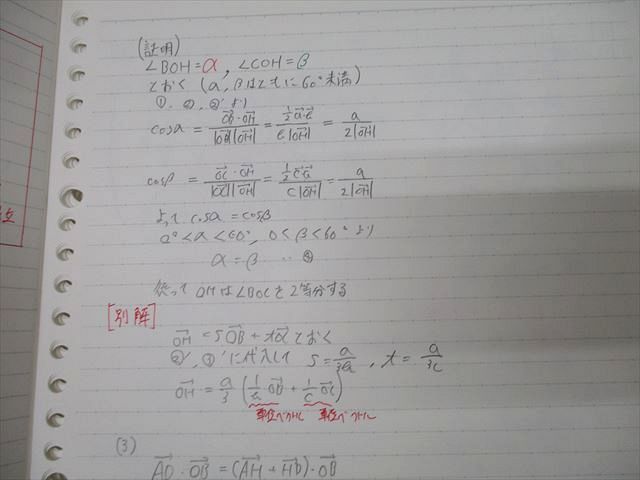 (証明)
∠BOH=α, ∠COH=β
とおく (α,βはともに60°未満)
①, ②, ②' より
cosα = OB→・OH→/|OB→||OH→| = 1/2 a・b/b|OH→| = a/2|OH→|
cosβ = OC→・OH→/|OC→||OH→| = 1/2 ca/c|OH→| = a/2|OH→|
よって cosα = cosβ
0°<α<60°, 0<β<60° より
α = β
従って OHは∠BOCを2等分する
[別解]
OH→ = sOB→ + tOC→ とおく
に代入して s = a/3b, t = a/3c
OH→ = a/3 (1/b OB→ + 1/c OC→)
単位ベクトル 単位ベクトル
(3)
AD→・OB→ = (AH→ + HD→)・OB→